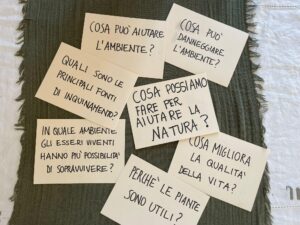 COSA PUO' AIUTARE
L'AMBIENTE?
COSA PUO'
DANNEGGIARE
L'AMBIENTE?
QUALI SONO LE
PRINCIPALI FONTI
DI INQUINAMENTO?
COSA POSSIAMO
FARE PER
AIUTARE LA
NATURA?
IN QUALE AMBIENTE
GLI ESSERI VIVENTI
HANNO PIU' POSSIBILITA'
DI SOPRAVVIVERE?
COSA MIGLIORA
LA QUALITA'
DELLA VITA?
PERCHÈ LE PIANTE
SONO UTILI?